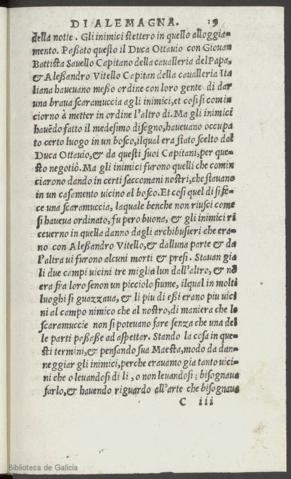 DI ALEMAGNA. 19
della notte. Gli inimici stettero in quello alloggia-
mento. Passato questo il Duca Ottauio con Giouan
Battista Sauello Capitano della caualleria del Papa,
& Alessandro Vitello Capitan della caualleria Ita
liana haueuano messo ordine con loro gente di dar
una braua scaramuccia agli inimici, et cosi si comin
ciorno à metter in ordine l'altro di. Ma gli inimici
hauēdo fatto il medesimo disegno, haueuano occupa
to certo luogo in un bosco, ilqual era stato scelto dal
Duca Ottauio, & da questi suoi Capitani, per que-
sto negotiò. Ma gli inimici furono quelli che comin
ciarono dando in certi saccomani nostri, che stauano
in un casamento uicino al bosco. Et cosi quel di si fe-
ce una scaramuccia, laquale benche non riusci come
si haueua ordinato, fu pero buona, & gli inimici ri
ceuerno in quella danno dagli archibusieri che era-
no con Alessandro Vitello, & dalluna parte & da
l'altra ui furono alcuni morti & presi. Stauan gia
li due campi uicini tre miglia lun dall'altro, & nō
era fra loro senon un picciolo fiume, ilqual in molti
luoghi si guazzaua, & li piu di eßi erano piu uici
ni al campo nimico che al nostro, di maniera che le
scaramuccie non si poteuano fare senza che una del
le parti passaße ad aspettar. Stando la cosa in que-
sti termini, & pensando sua Maesta, modo da dan-
neggiar gli inimici, perche erauamo gia tanto uici-
ni che o leuandosi di li, o non leuandosi; bisognaua
farlo, & hauendo riguardo all'arte che bisognaua
C iii
Biblioteca de Galicia